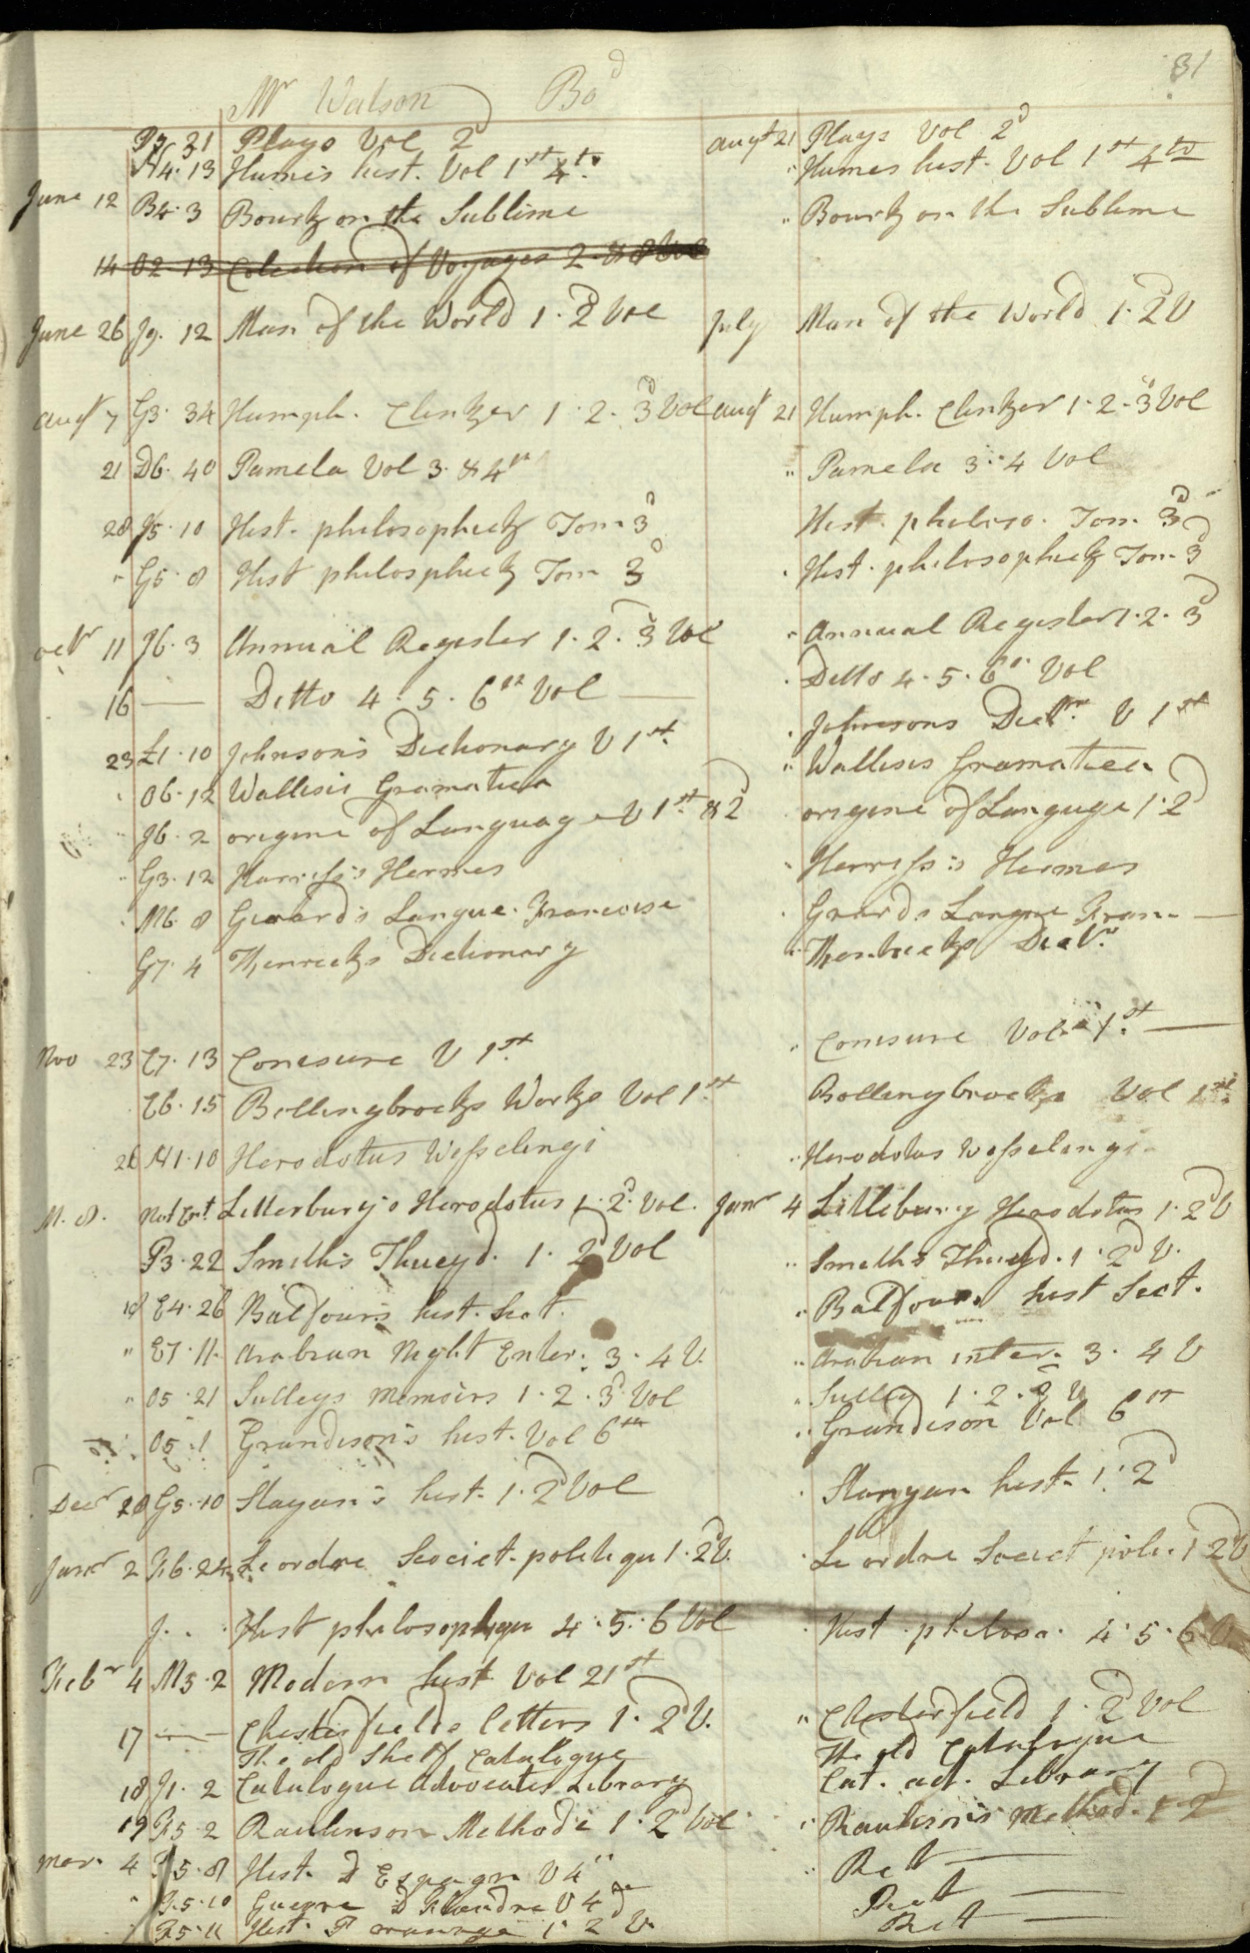 31
Mr Watson Bod
P3. 31 Plays Vol 2d augt 21 Plays Vol 2d
H4. 13 Humes hist. Vol 1st 4to " Humes hist. Vol 1st 4to
June 12 B4. 3 Bourk on the Sublime " Bourk on the Sublime
14 O2. 13 Colection of Voyages 2. & 8 Vol
June 26 J9. 12 Man of the World 1. 2d Vol July Man of the World 1. 2d V
augt 7 G3. 34 Humph. Clinker 1. 2. 3d Vol augt 21 Humph. Clinker 1. 2. 3d Vol
21 D6. 40 Pamela Vol 3. & 4th " Pamela 3. 4 Vol
28 J5. 10 Hist. philosophick Tom 3d Hist. philoso. Tom. 3d
" G5. 8 Hist philosphick Tom 3d " Hist. philosophick Tom 3d
octr 11 J6. 3 Annual Register 1. 2. 3d Vol " Annual Register 1. 2. 3d
16 — Ditto 4. 5. 6th Vol — " Ditto 4. 5. 6th Vol
23 L1. 10 Johnson's Dictionary V 1st. " Johnsons Dictr. V 1st
" O6. 12 Wallisii Gramatica " Wallisis Gramatica
" J6. 2 origine of Language V 1st. & 2d origine of Languge 1. 2d
" G3. 12 Harriss's Hermes " Herriss's Hermes
" M6. 8 Girard's Langue. Francoise " Girards Langue Fran. —
G7. 4 Kenricks Dictionary " Kenricks Dictr.
Nov 23 E7. 13 Conesure V 1st. " Conisure Vol 1st. —
E6. 15 Bollingbrocks Works Vol 1st. Bollingbrocks Vol 1st.
26 H1. 10 Herodotus Wesselingi " Herodotus Wesselengi
M. 8. Not Ent. Litterbury's Herodotus 1. 2d. Vol. Janr 4 Littlebury Herodotus 1. 2d V
P3. 22 Smith's Thucyd. 1. 2d Vol " Smiths Thucyd. 1. 2d V.
18 E4. 26 Balfours hist. Sect. " Balfours hist Sect.
" E7. 11. Arabian Night Enter. 3. 4 V. " Arabian inter. 3. 4 V
" O5. 21 Sulleys Memoirs 1. 2. 3d. Vol " Sulley 1. 2. 3 V
O5. 1 Grandison's hist. Vol 6th " Grandison Vol 6th
Decr 28 G5. 10 Stayan's hist. 1. 2d Vol " Stanyan hist. 1. 2d
Janr 2 F6. 24 Le ordre Societ. politiqu 1. 2d V. " Le ordre Societ poli. 1 2d V
J. . Hist philosophiqu 4. 5. 6 Vol " Hist. philoso. 4. 5. 6 V
Febr 4 M3. 2 Modern hist Vol 21st
17 — Chesterfields letters 1. 2d V. " Chesterfield 1. 2d Vol
The old Shelf Catalogue The old Catalogue
18 J1. 2 Catalogue Advocates Library Cat. ad. Library
19 F5. 2 Raulinson Methode 1. 2d Vol " Raulison's Method. 1. 2
Mar. 4 F5. 8 Hist. D Espagn V 4th " Ret —
" F5. 10 Guerre D Flandre V 4 Ret —
" F5. 11 Hist. 1. 2 V. Ret —